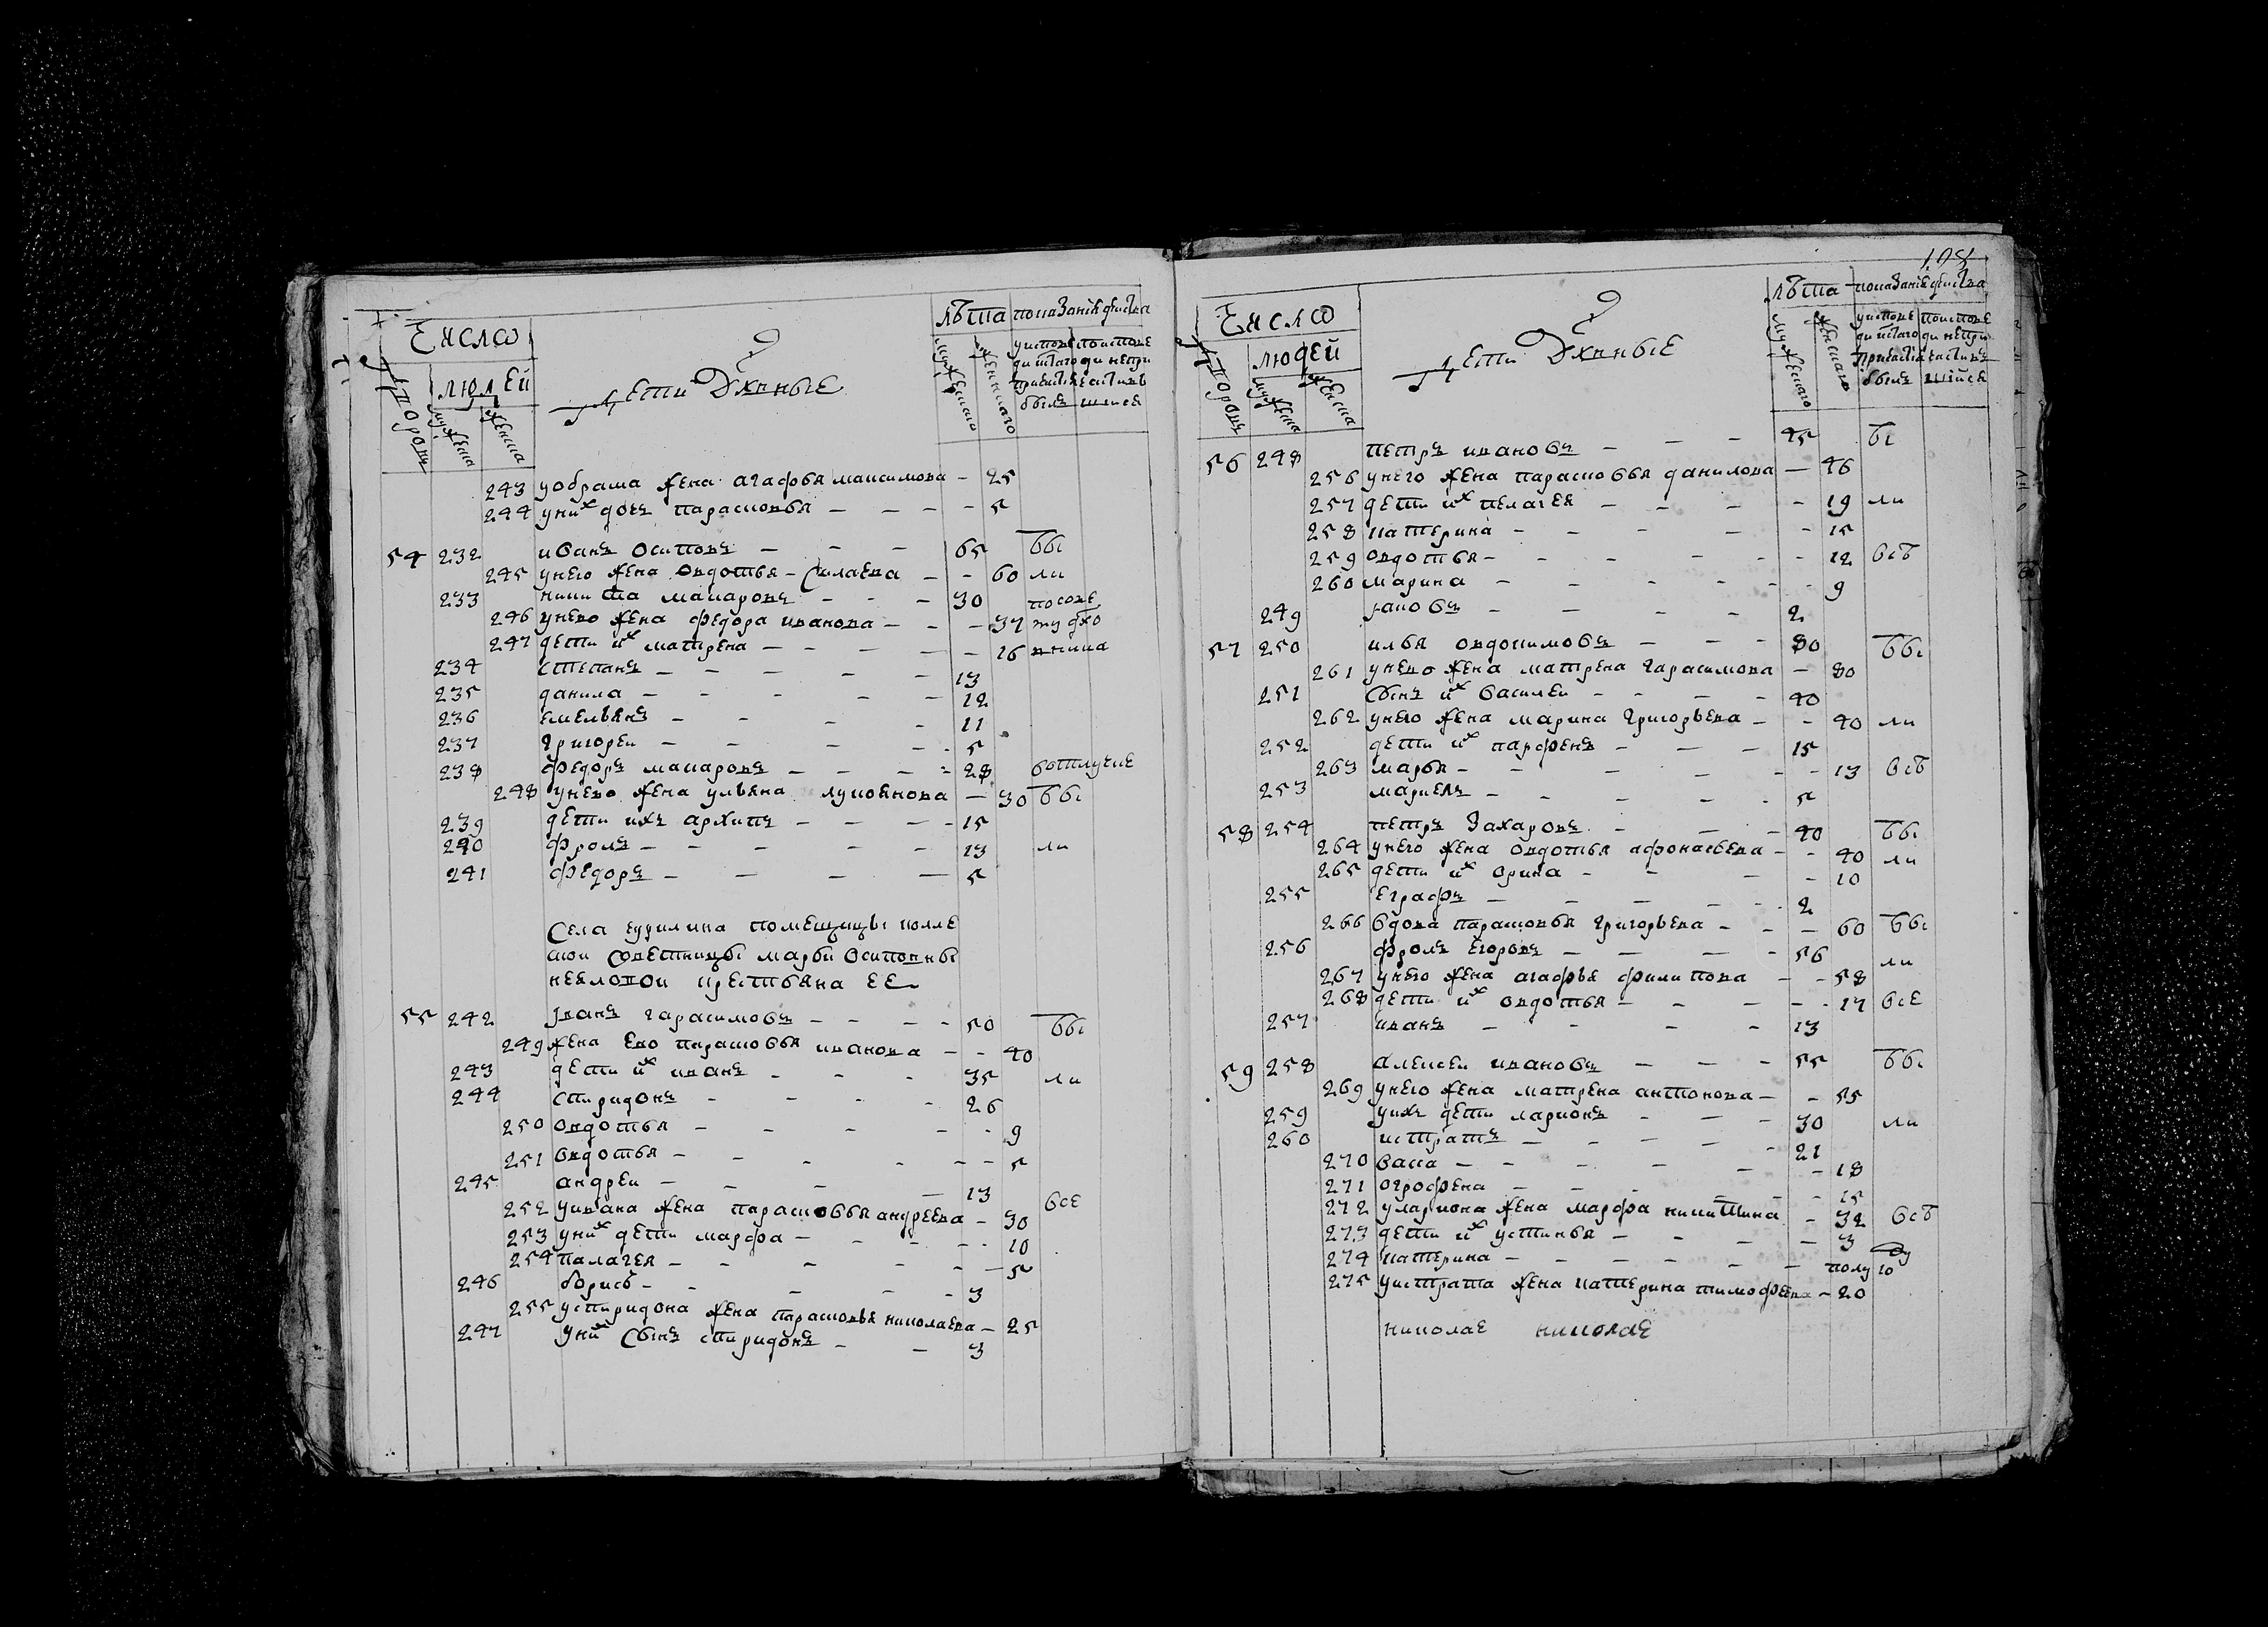 Число
людей
дворовъ
мужеска
женска
дети Дхвныѣ
лѣта показание действа
мужескаго
женскаго
243 у обрама жена агафья максимова - 25
244 у них дочь парасковья - - - - 5
54 232 иванъ осиповъ - - - 65 бы
245 у него жена овдотья - силаева - - 60 ли
233 никита макаровъ - - - 30 по сове
246 у нево жена федора иванова - - - 37 ту дхо
247 дети их матрена - - - - - 16 вника
234 степанъ - - - - - 13
235 данила - - - - - 12
236 емельянъ - - - - 11
237 григореи - - - - 5
238 федоръ макаровъ - - - - 28 вотлучке
248 у нево жена ульяна лукоянова - 30 бы
239 дети ихъ архипъ - - - - 15
240 фролъ - - - - - 13 ли
241 федоръ - - - - 5
Села помещицы колле
жскои советницы марьи осиповны
нееловои крестьяна ее
55 242 иванъ гарасимовъ - - - - 50 бы
249 жена ево парасковья иванова - - 40
243 дети их иванъ - - - 35 ли
244 спиридонъ - - - - 26
250 овдотья - - - - - - 9
251 овдотья - - - - - - 5
245 андреи - - - - 13
252 у ивана жена парасковья андреева - 30 все
253 у них дети марфа - - - - - 10
254 палагея - - - - - - 5
246 борисъ - - - - - 3
255 у спиридона жена парасковья николаева - 25
247 у них сынъ спиридонъ - - 3
Число
людей
дворовъ
мужеска
женска
дети Дхвныѣ
лѣта показание действа
мужескаго
женскаго
56 248 петръ ивановъ - - - 45 бы
256 у него жена парасковья данилова - 46
257 дети их пелагея - - - - 19 ли
258 катерина - - - - - 15
259 овдотья - - - - - - 12 всѣ
260 марина - - - - - - 9
249 яковъ - - - - 2
57 250 илья овдокимовъ - - - 80 бы
261 у нево жена матрена гарасимова - 80
251 сынъ их василеи - - - - 40
262 у него жена марина григорьева - - 40 ли
252 дети их парфенъ - - - 15
263 марья - - - - - - 13 всѣ
253 маркелъ - - - - - 5
58 254 петръ захаровъ - - - 40 бы
264 у него жена овдотья афонасьева - - 40 ли
265 дети их орина - - - - 10
255 еграфъ - - - - - 2
266 вдова парасковья григорьева - - - 60 бы
256 фролъ егоровъ - - - - 56 ли
267 у него жена агафья филипова - - 58
268 дети их овдотья - - - - - 17 все
257 иванъ - - - - 13
59 258 алексеи ивановъ - - - 55 бы
269 у него жена матрена антонова - - 55
259 у ихъ дети ларионъ - - - 30 ли
260 истратъ - - - - - 21
270 васа - - - - - - 18
271 огрофена - - - - - - 15
272 у лариона жена марфа никитина - 32 всѣ
273 дети их устинья - - - - 3
274 катерина - - - - - - полу го ду
275 у истрата жена катерина тимофеева - 20
николае николае